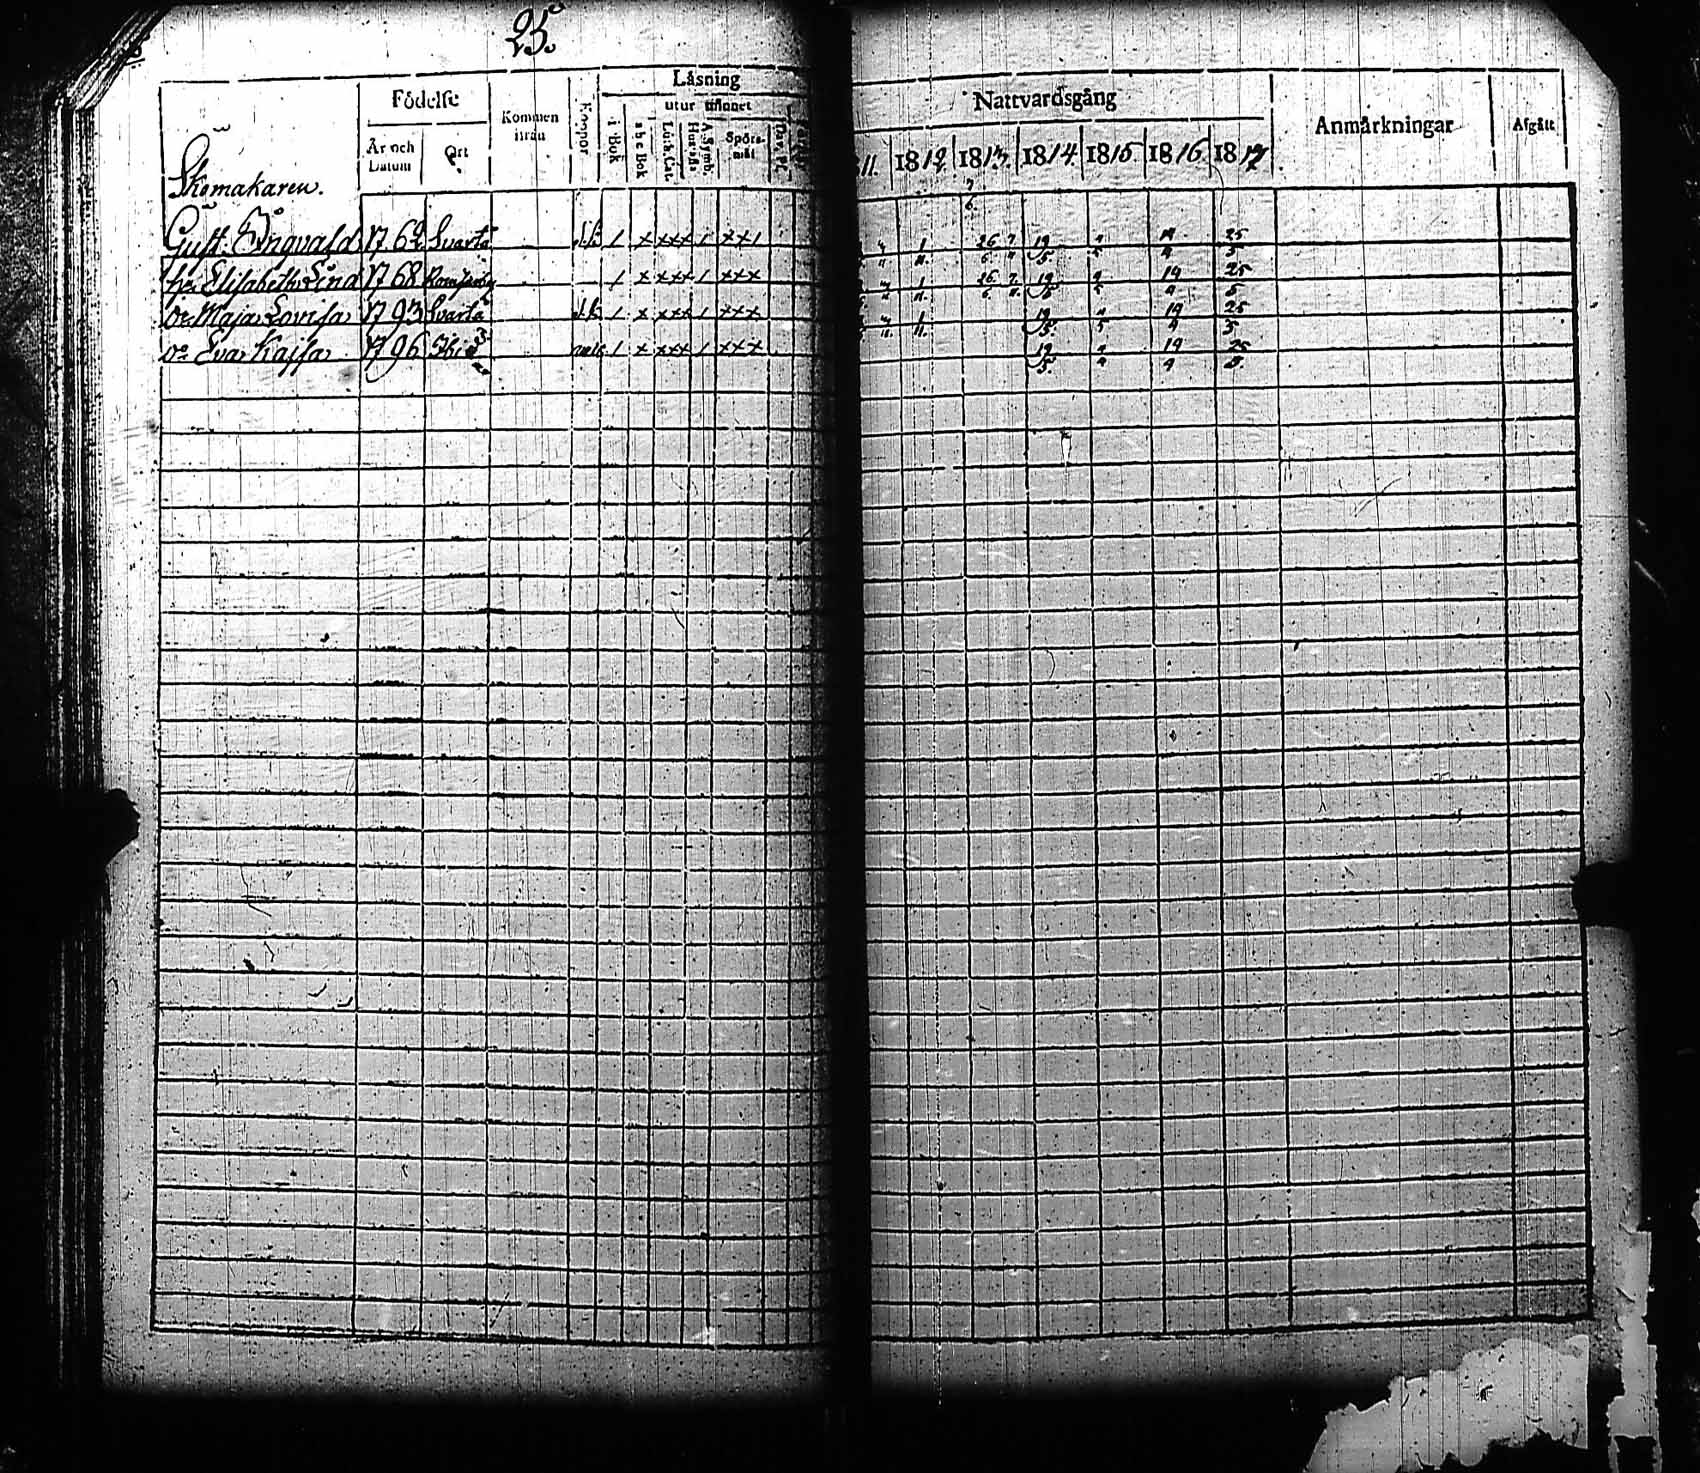 25.
Läsning
Födelse
Kommen ifrån
Koppor
utur minnet
Nattvardsgång
Anmärkningar
Afgått
År och Datum
Ort
i Bok
a b c Bok
Luth. Cat.
A. Symb. Hustafl.
Spörsmål
Dav. Ps.
11. 1812. 1813. 1814. 1815 1816. 1817
Skomakaren.
7
6
Gust. Ingvald 1762 Svärta 1 x xxx 1 xx1 1 11. 26 6 7 19 5 19 25 5
Elisabeth 1768 1 x xxx 1 xxx 1 11. 26 6 7 19 5 19 25 5
Maja Lovisa 1793 Svärta 1 x xxx 1 xxx 1 11. 19 5 19 25 5
Eva Kajsa 1796 1 x xxx 1 xxx 19 5. 19 25